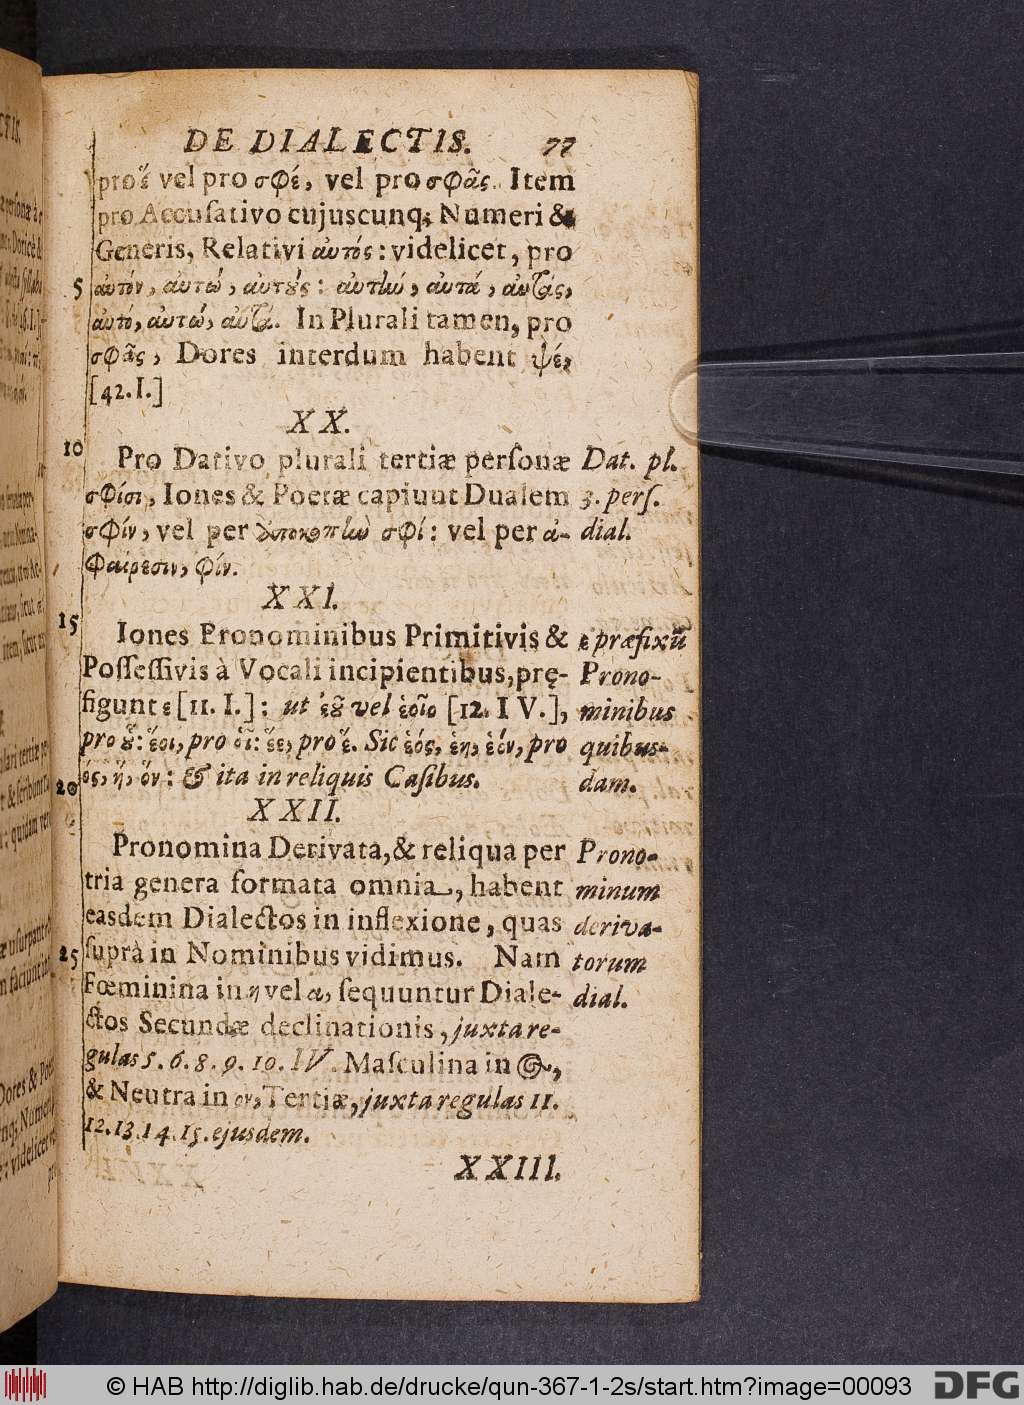 DE DIALECTIS. 77
pro ἕ vel pro σφέ, vel pro σφᾶς. Item
pro Accuſativo cujuscunq; Numeri &
Generis, Relativi αὐτός: videlicet, pro
5 αὐτόν, αὐτώ, αὐτούς: αὐτήν, αὐτά, αὐτάς,
αὐτό, αὐτώ, αὐτά. In Plurali tamen, pro
σφᾶς, Dores interdum habent ψέ,
[42. I.]
XX.
10 Pro Dativo plurali tertiæ perſonæ Dat. pl.
σφίσι, Iones & Poetæ capiunt Dualem 3. perſ.
σφίν, vel per ἀποκοπὴν σφί: vel per ἀ- dial.
φαίρεσιν, φίν.
XXI.
15 Iones Pronominibus Primitivis & ε præfixũ
Poſſeſſivis à Vocali incipientibus, prę- Prono-
figunt ε [11. I.]: ut ἑοῦ vel ἑοῖο [12. IV.], minibus
pro οὗ: ἕοι, pro οἷ: ἕε, pro ἕ. Sic ἑός, ἑη, ἑόν, pro quibus-
20 ὅς, ἥ, ὅν: & ita in reliquis Caſibus. dam.
XXII.
Pronomina Derivata, & reliqua per Prono-
tria genera formata omnia, habent minum
easdem Dialectos in inflexione, quas deriva-
25 ſuprà in Nominibus vidimus. Nam torum
Fœminina in η vel α, ſequuntur Diale- dial.
ctos Secundæ declinationis, juxta re-
gulas 5. 6. 8. 9. 10. IV. Maſculina in ος,
& Neutra in ον, Tertiæ, juxta regulas 11.
12. 13. 14. 15. ejusdem.
XXIII.
© HAB http://diglib.hab.de/drucke/qun-367-1-2s/start.htm?image=00093 DFG